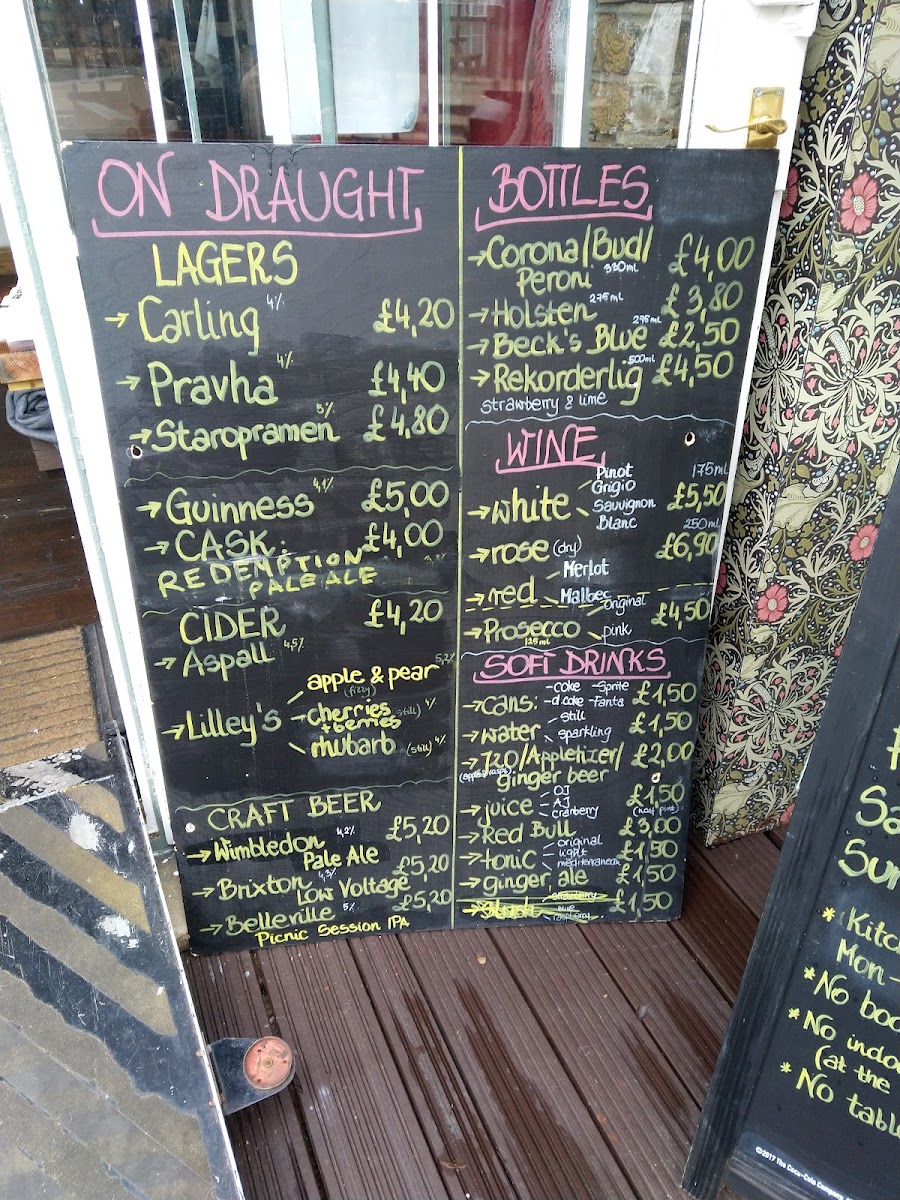 ON DRAUGHT
LAGERS
→ Carling 4% £4,20
→ Pravha 4% £4,40
→ Staropramen 5% £4,80
→ Guinness 4,1% £5,00
→ CASK: £4,00
REDEMPTION
PALE ALE
CIDER £4,20
→ Aspall 4,5%
→ Lilley's
apple & pear 5,2%
(fizzy)
cherries (still) 4%
+ berries
rhubarb (still) 4%
CRAFT BEER
→ Wimbledon 4,2% £5,20
Pale Ale
→ Brixton 4,3% £5,20
Low Voltage
→ Belleville 5% £5,20
Picnic Session IPA
BOTTLES
→ Corona/Bud/ £4,00
Peroni 330ml
→ Holsten 275ml £3,80
→ Beck's Blue 275ml £2,50
→ Rekorderlig 500ml £4,50
strawberry & lime
WINE
→ white
Pinot
Grigio
Sauvignon
Blanc
175ml
£5,50
250ml
£6,90
→ rose (dry)
→ red
Merlot
Malbec
→ Prosecco £4,50
125ml
original
pink
SOFT DRINKS
→ cans: -coke -Sprite £1,50
-d.coke -Fanta
→ water £1,50
still
sparkling
→ J2O/Appletizer/ £2,00
ginger beer
→ juice £1,50
OJ
AJ
cranberry
(half pint)
→ Red Bull £3,00
→ tonic £1,50
original
light
mediterranean
→ ginger ale £1,50
→ Slush £1,50
strawberry
blue
raspberry
Sa
Sun
* Kitc
Mon-
* No boo
* No indo
(at the
* No table
©2017 The Coca-Cola Company